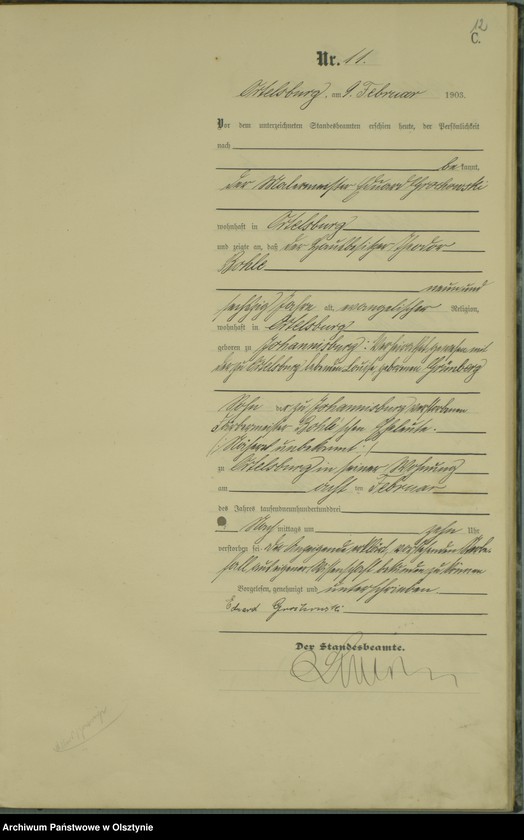 12
C.
Nr. 11.
Ortelsburg, am 9. Februar 1903.
Vor dem unterzeichneten Standesbeamten erschien heute, der Persönlichkeit
nach
be kannt,
der Malermeister Eduard Grochowski
wohnhaft in Ortelsburg
und zeigte an, daß der Hausbesitzer Theodor
Bohle
neunund
sechszig Jahre alt, evangelischer Religion,
wohnhaft in Ortelsburg
geboren zu Johannisburg, verheirathet gewesen mit
der zu Ortelsburg lebenden Louise geborenen Grünberg
Sohn der zu Johannisburg verstorbenen
Färbermeister Bohle'schen Eheleute.
(Näheres unbekannt)
zu Ortelsburg in seiner Wohnung
am acht ten Februar
des Jahres tausendneunhundertunddrei
Nach mittags um zehn Uhr
verstorben sei. Der Anzeigende erklärt, vorstehenden Sterbe-
fall aus eigener Wissenschaft bekunden zu können
Vorgelesen, genehmigt und unterschrieben
Eduard Grochowski
Der Standesbeamte.
Archiwum Państwowe w Olsztynie